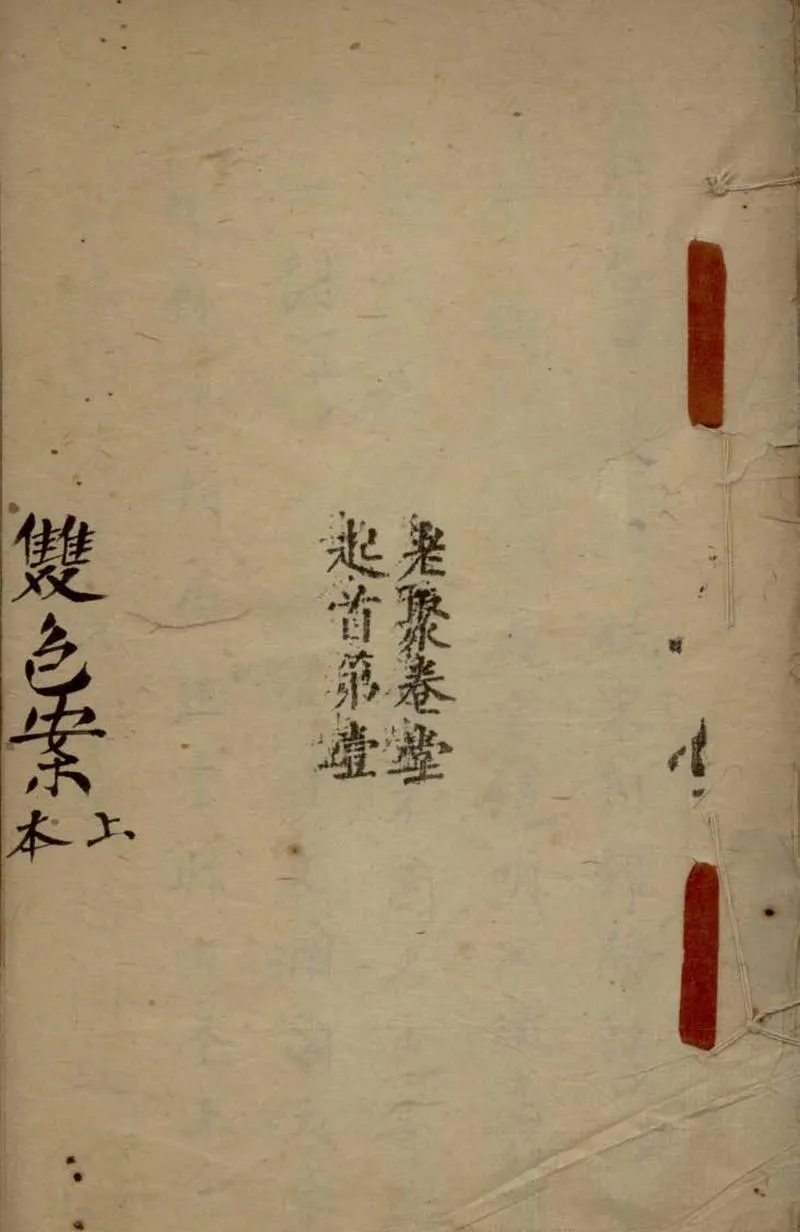 老聚卷堂
起首第壹
雙色案
上
本